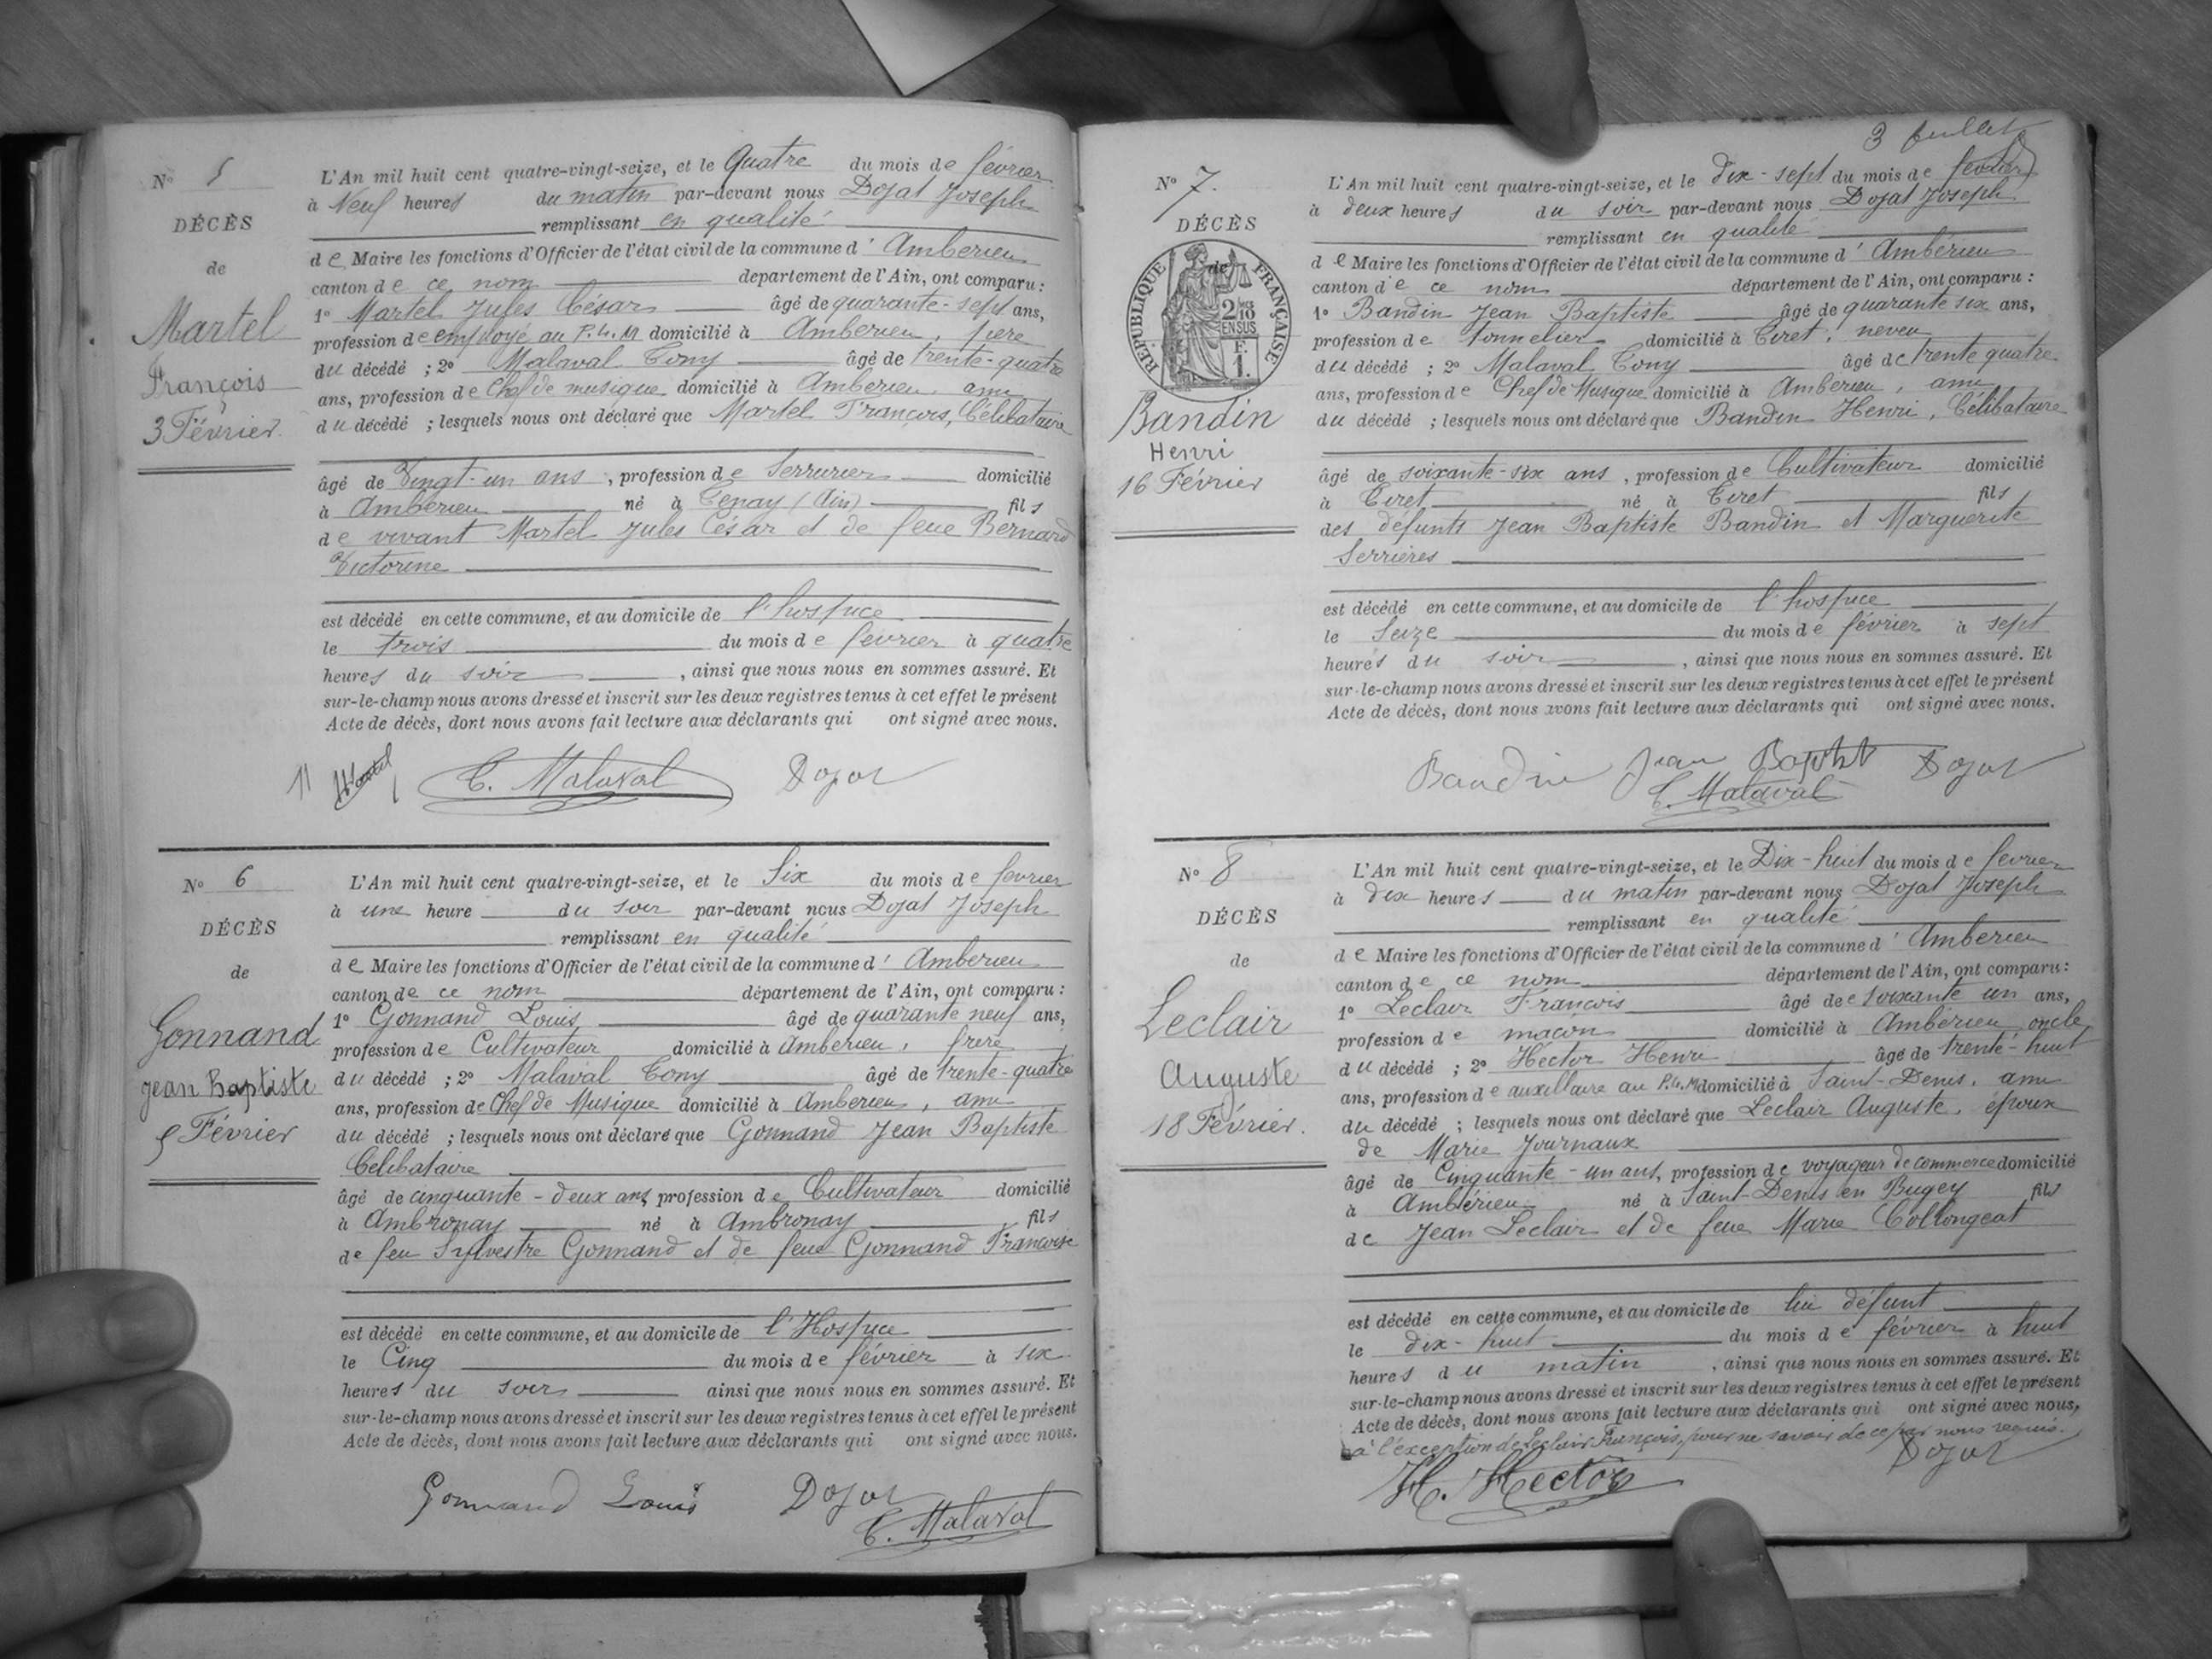 N° 5
DÉCÈS
de
Martel
François
3 Février.
L'An mil huit cent quatre-vingt-seize, et le Quatre du mois de février
à Neuf heures du matin par-devant nous Dojat Joseph
remplissant en qualité
de Maire les fonctions d'Officier de l'état civil de la commune d'Ambérieu
canton de ce nom département de l'Ain, ont comparu :
1° Martel Jules César âgé de quarante-sept ans,
profession de employé au P.L.M domicilié à Ambérieu, père
du décédé ; 2° Malaval Tony âgé de trente-quatre
ans, profession de Chef de musique domicilié à Ambérieu, ami
du décédé ; lesquels nous ont déclaré que Martel François, Célibataire
âgé de Vingt-un ans, profession de Serrurier domicilié
à Ambérieu né à Tenay (Ain) fils
de vivant Martel Jules César et de feue Bernard
Victorine
est décédé en cette commune, et au domicile de l'hospice
le trois du mois de février à quatre
heures du soir, ainsi que nous nous en sommes assuré. Et
sur-le-champ nous avons dressé et inscrit sur les deux registres tenus à cet effet le présent
Acte de décès, dont nous avons fait lecture aux déclarants qui ont signé avec nous.
Martel C. Malaval Dojat
N° 6
DÉCÈS
de
Gonnand
Jean Baptiste
5 Février
L'An mil huit cent quatre-vingt-seize, et le Six du mois de février
à une heure du soir par-devant nous Dojat Joseph
remplissant en qualité
de Maire les fonctions d'Officier de l'état civil de la commune d'Ambérieu
canton de ce nom département de l'Ain, ont comparu :
1° Gonnand Louis âgé de quarante neuf ans,
profession de Cultivateur domicilié à Ambérieu, frère
du décédé ; 2° Malaval Tony âgé de trente-quatre
ans, profession de Chef de Musique domicilié à Ambérieu, ami
du décédé ; lesquels nous ont déclaré que Gonnand Jean Baptiste
Célibataire
âgé de cinquante-deux ans, profession de Cultivateur domicilié
à Ambronay né à Ambronay fils
de feu Sylvestre Gonnand et de feue Gonnand Françoise
est décédé en cette commune, et au domicile de l'Hospice
le Cinq du mois de février à six
heures du soir ainsi que nous nous en sommes assuré. Et
sur-le-champ nous avons dressé et inscrit sur les deux registres tenus à cet effet le présent
Acte de décès, dont nous avons fait lecture aux déclarants qui ont signé avec nous.
Gonnand Louis Dojat
C. Malaval
3
N° 7.
DÉCÈS
de
RÉPUBLIQUE FRANÇAISE
2/10 EN SUS
F. 1.
Bandin
Henri
16 Février
L'An mil huit cent quatre-vingt-seize, et le dix-sept du mois de février
à deux heures du soir par-devant nous Dojat Joseph
remplissant en qualité
de Maire les fonctions d'Officier de l'état civil de la commune d'Ambérieu
canton de ce nom département de l'Ain, ont comparu :
1° Bandin Jean Baptiste âgé de quarante six ans,
profession de tonnelier domicilié à Tiret, neveu
du décédé ; 2° Malaval Tony âgé de trente quatre
ans, profession de Chef de Musique domicilié à Ambérieu, ami
du décédé ; lesquels nous ont déclaré que Bandin Henri, Célibataire
âgé de soixante-six ans, profession de Cultivateur domicilié
à Tiret né à Tiret fils
des défunts Jean Baptiste Bandin et Marguerite
Serrières
est décédé en cette commune, et au domicile de l'hospice
le Seize du mois de février à sept
heures du soir, ainsi que nous nous en sommes assuré. Et
sur-le-champ nous avons dressé et inscrit sur les deux registres tenus à cet effet le présent
Acte de décès, dont nous avons fait lecture aux déclarants qui ont signé avec nous.
Bandin Jean Baptist Dojat
C. Malaval
N° 8
DÉCÈS
de
Leclair
Auguste
18 Février.
L'An mil huit cent quatre-vingt-seize, et le Dix-huit du mois de février
à dix heures du matin par-devant nous Dojat Joseph
remplissant en qualité
de Maire les fonctions d'Officier de l'état civil de la commune d'Ambérieu
canton de ce nom département de l'Ain, ont comparu :
1° Leclair François âgé de soixante un ans,
profession de maçon domicilié à Ambérieu oncle
du décédé ; 2° Hector Henri âgé de trente-huit
ans, profession de auxiliaire au P.L.M domicilié à Saint-Denis, ami
du décédé ; lesquels nous ont déclaré que Leclair Auguste, époux
de Marie Journaux
âgé de Cinquante-un ans, profession de voyageur de commerce domicilié
à Ambérieu né à Saint-Denis en Bugey fils
de Jean Leclair et de feue Marie Collongeat
est décédé en cette commune, et au domicile de lui défunt
le dix-huit du mois de février à huit
heures du matin, ainsi que nous nous en sommes assuré. Et
sur-le-champ nous avons dressé et inscrit sur les deux registres tenus à cet effet le présent
Acte de décès, dont nous avons fait lecture aux déclarants qui ont signé avec nous,
à l'exception de Leclair François, pour ne savoir de ce par nous requis.
H. Hector Dojat